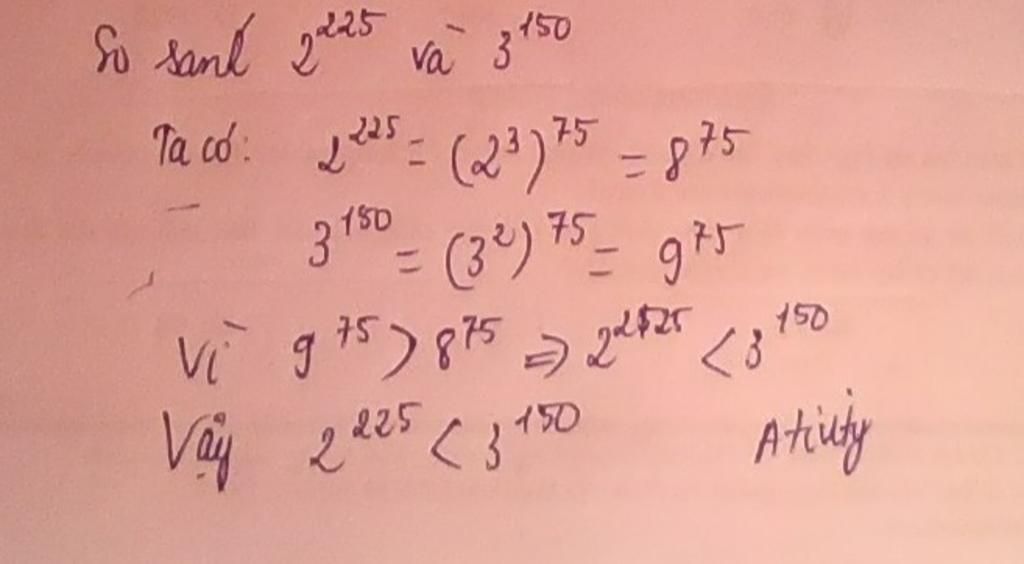 So sanh 2^225 và 3^150
Ta có: 2^225 = (2^3)^75 = 8^75
3^150 = (3^2)^75 = 9^75
Vì 9^75 > 8^75 => 2^225 < 3^150
Vậy 2^225 < 3^150 Ativity